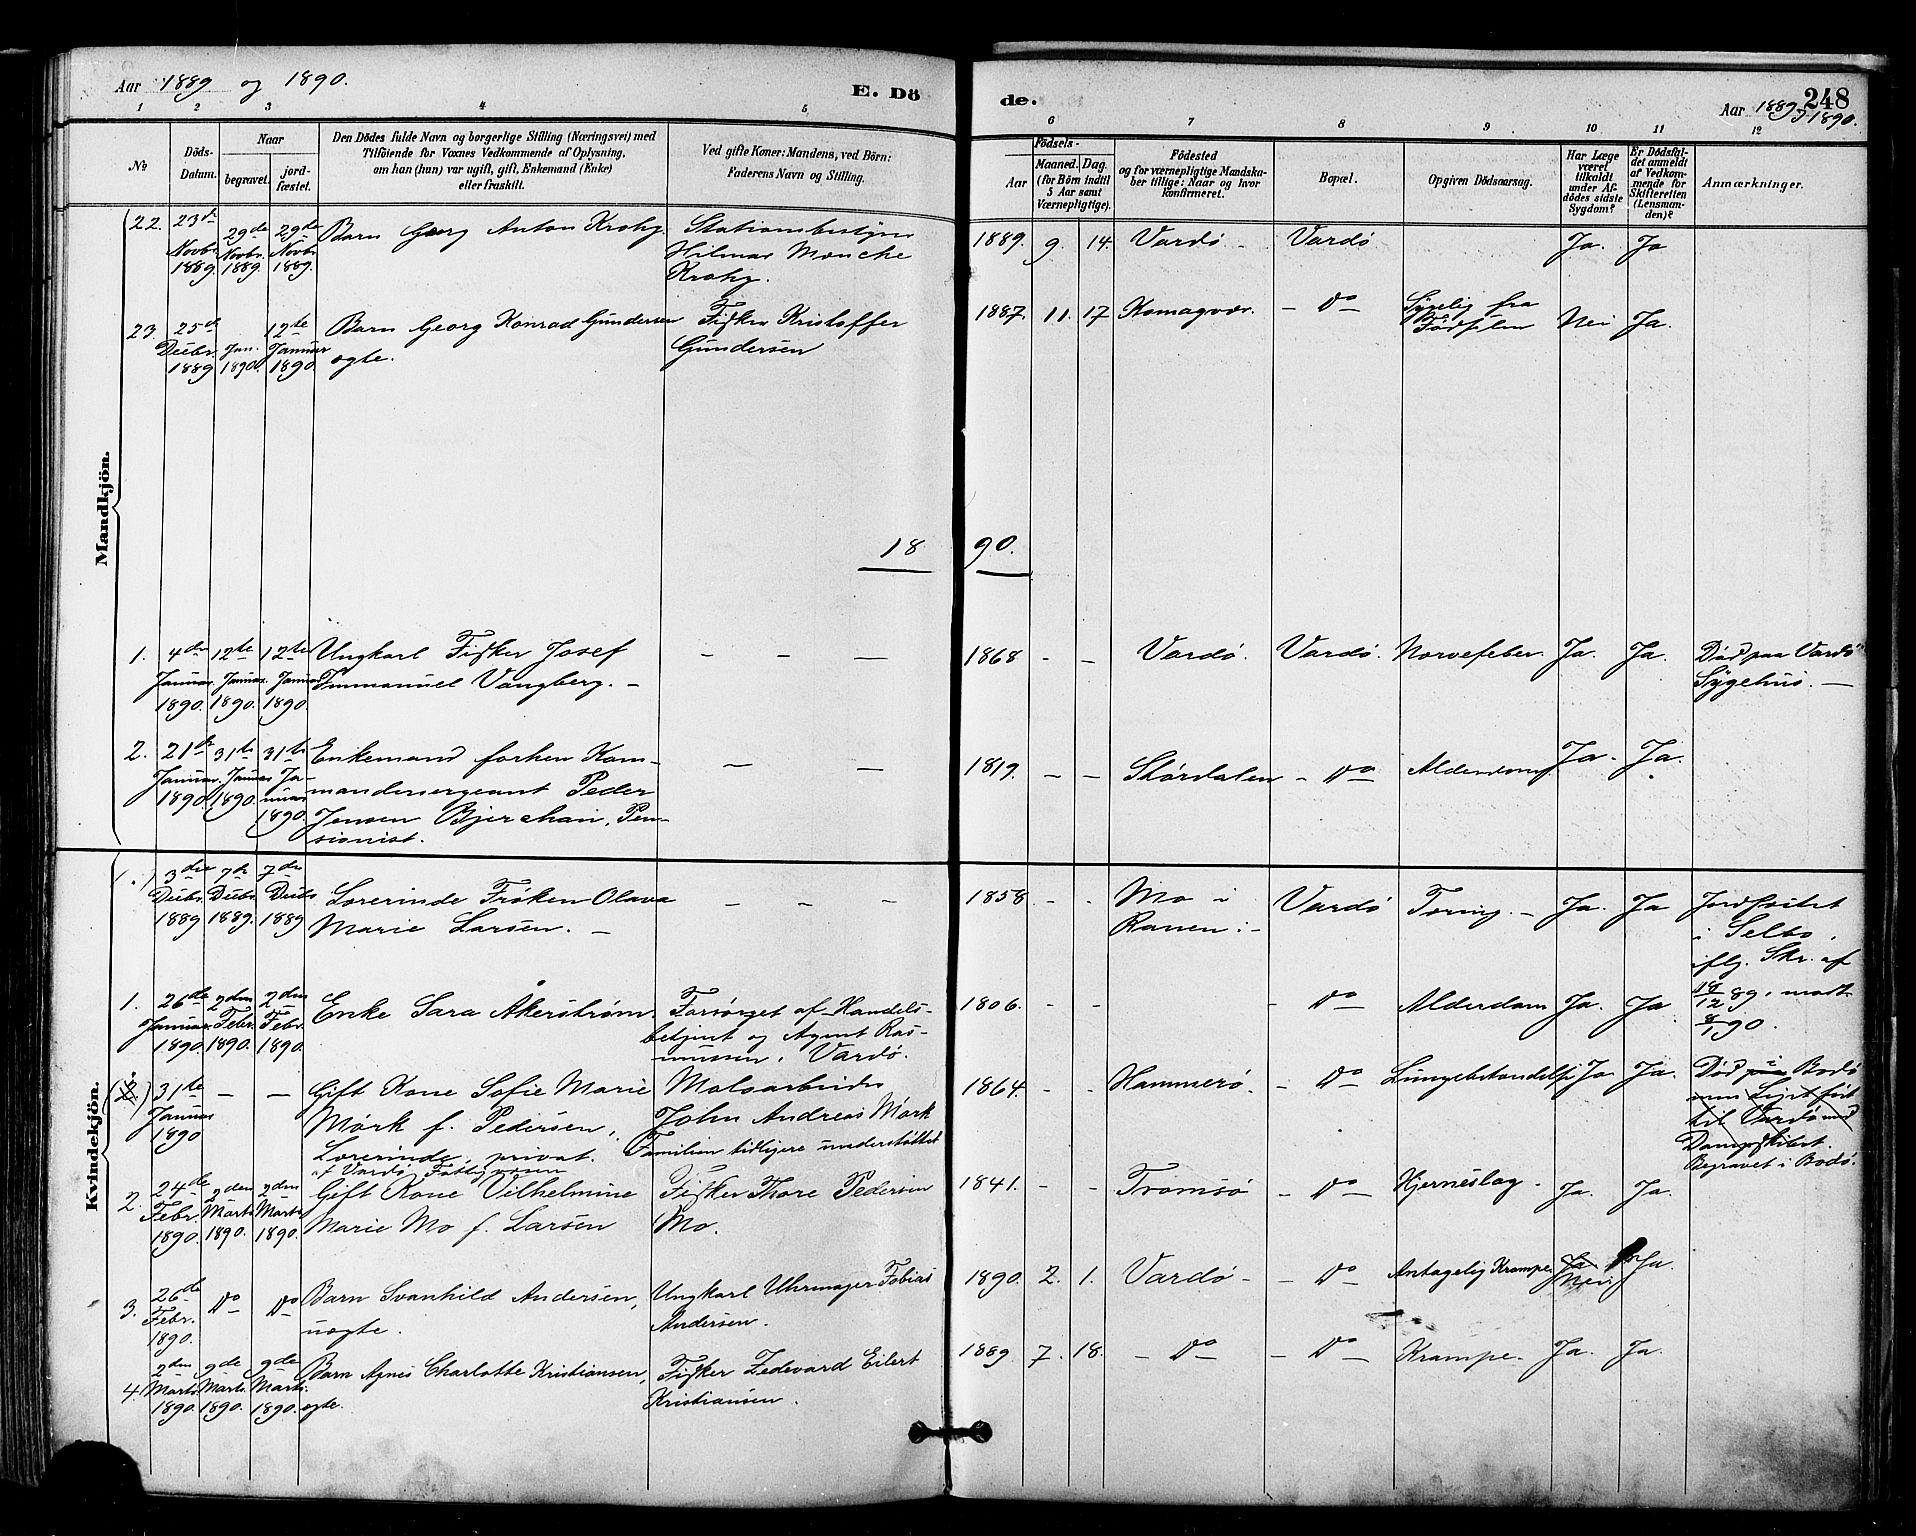 Aar 1889 og 1890.
E. Döde.
Aar 1889 1890.
248
1 2 3 4 5 6 7 8 9 10 11 12
№
Döds-Datum.
Naar
begravet.
jordfæstet.
Den Dödes fulde Navn og borgerlige Stilling (Næringsvei) med
Tilföiende for Voxnes Vedkommende af Oplysning,
om han (hun) var ugift, gift, Enkemand (Enke)
eller fraskilt.
Ved gifte Koner: Mandens, ved Börn:
Faderens Navn og Stilling.
Födsels-
Aar
Maaned. Dag.
(for Börn indtil
5 Aar samt
Værnepligtige).
Födested
og for værnepligtige Mandskaber tillige: Naar og hvor
konfirmeret.
Bopæl.
Opgiven Dödsaarsag.
Har Læge
været
tilkaldt
under Afdödes sidste
Sygdom?
Er Dödsfaldet anmeldt
af Vedkommende for
Skifteretten
(Lensmanden)?
Anmærkninger.
Mandkjön.
22. 23de Novbr. 1889 29de Novbr. 1889. 29de Novbr. 1889. Barn Georg Anton Krohg. Stationsbestyrer Hilmar Monche Krohg. 1889. 9. 14. Vardø - Vardø Ja. Ja
23. 25de Decbr. 1889 Jan. 1890. 12te Januar 1890. Barn Georg Konrad Gundersen ogte. Fisker Kristoffer Gundersen 1887. 11. 17 Komagvær. - Do - Sygelig fra Fødselen Nei Ja.
1890.
1. 4de Januar. 1890. 12te Januar. 1890. 12te Januar 1890. Ungkarl Fisker Josef Immanuel Vangberg. - - - - 1868 - - Vardø. Vardø. Nervefeber. Ja. Ja. Død paa Vardø Sygehus. -
2. 21de Januar. 1890. 31te Januar 1890. 31te Januar 1890. Enkemand forhen Kommandersergeant Peder Jensen Bjerchan, Pensionist. - - 1819. - - Størdalen - Do - Alderdom. Ja. Ja.
Kvindekjön.
(1.) 3die Decbr. 1889 7de Decbr. 1889. 7de Decbr. 1889 Lærerinde Frøken Olava Marie Larsen. - - - - 1858 - - Mo i Ranen. - Vardø Tæring. - Ja. Ja Jordfæstet i Selbo, iflg. Skr. af 18/12 89, modt. 8/1 90.
1. 26de Januar. 1890. 2den Febr. 1890. 2den Febr. 1890. Enke Sara Åkerstrøm. Forsørget af Handelsbetjent og Agent Rasmussen i Vardø. 1806. - - - Do - Alderdom Ja. Ja.
(2.) 31te Januar 1890 - - Gift Kone Sofie Marie Mørk f. Pedersen, Lærerinde, privat. Malsarbeider John Andreas Mørk Familien tidligere understøttet af Vardø Fattigvæsen 1864. - - Hammerø. - Do - Lungebetændelse Ja Ja. Død paa i Bodø men Liget ført til Vardø med Dampskibet. Begravet i Bodø.
2. 24de Febr. 1890. 2den Marts 1890. 2den Marts 1890. Gift Kone Vilhelmine Marie Mo f. Larsen Fisker Thore Pedersen Mo. 1841. - - Tromsø - Do - Hjerneslag - Ja. Ja.
3. 26de Febr. 1890. Do Do Barn Svanhild Andersen, uogte. Ungkarl Uhrmager Tobias Andersen. 1890. 2. 1. Vardø - - Do - Antagelig Krampe. Ja Nei Ja.
4. 2den Marts. 1890. 9de Marts. 1890. 9de Marts. 1890. Barn Agnes Charlotte Kristiansen, ogte. Fisker Zedevard Eilert Kristiansen. 1889 7. 18. - Do - - Do - Krampe. Ja. Ja.